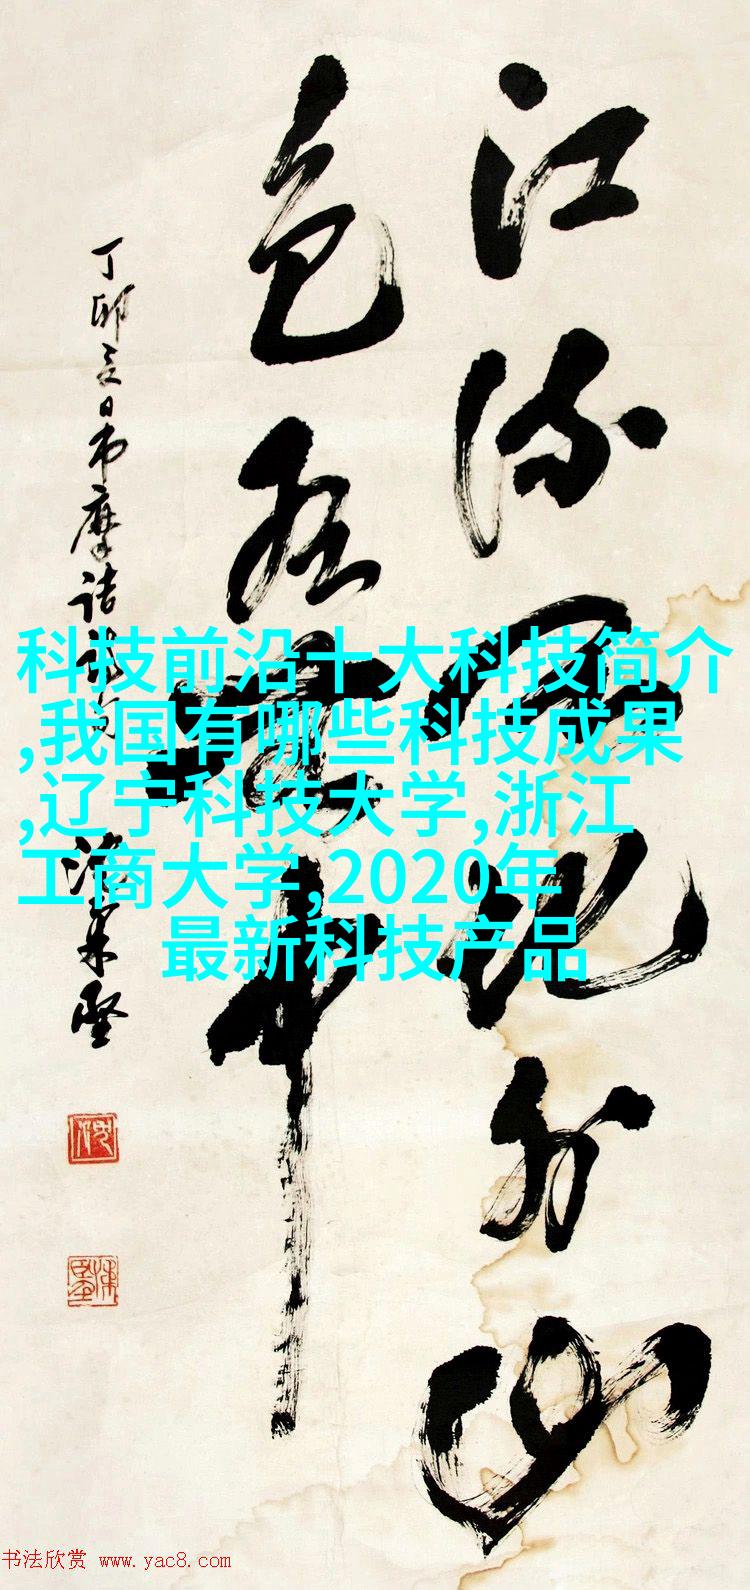 江流天地外山
色有無中
丁卯夏日书摩诘诗
科技前沿十大科技简介
,我国有哪些科技成果
,辽宁科技大学,浙江
工商大学,2020年
最新科技产品
书法欣赏 www.yac8.com